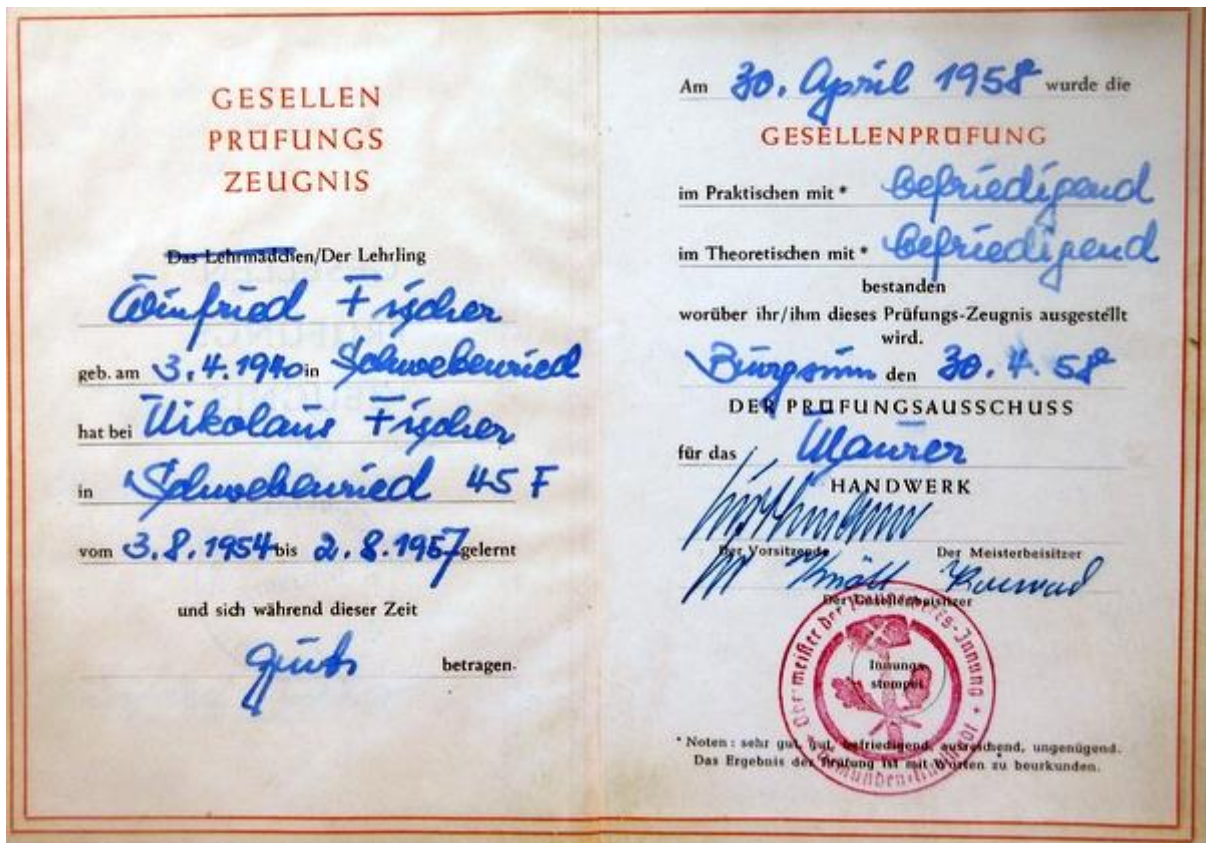 GESELLEN
PRÜFUNGS
ZEUGNIS
Das Lehrmädchen/Der Lehrling
Winfried Fischer
geb. am 3.4.1940 in Schwebenried
hat bei Nikolaus Fischer
in Schwebenried 45 F
vom 3.8.1954 bis 2.8.1957 gelernt
und sich während dieser Zeit
gut betragen.
Am 30. April 1958 wurde die
GESELLENPRÜFUNG
im Praktischen mit * befriedigend
im Theoretischen mit * befriedigend
bestanden
worüber ihr/ihm dieses Prüfungs-Zeugnis ausgestellt
wird.
Burgsinn den 30. 4. 58
DER PRÜFUNGSAUSSCHUSS
für das Maurer
HANDWERK
Der Vorsitzende Der Meisterbeisitzer
Konrad
Der Gesellenbeisitzer
Obermeister der Innung
Innungs
stempel
* Noten: sehr gut, gut, befriedigend, ausreichend, ungenügend.
Das Ergebnis der Prüfung ist mit Worten zu beurkunden.